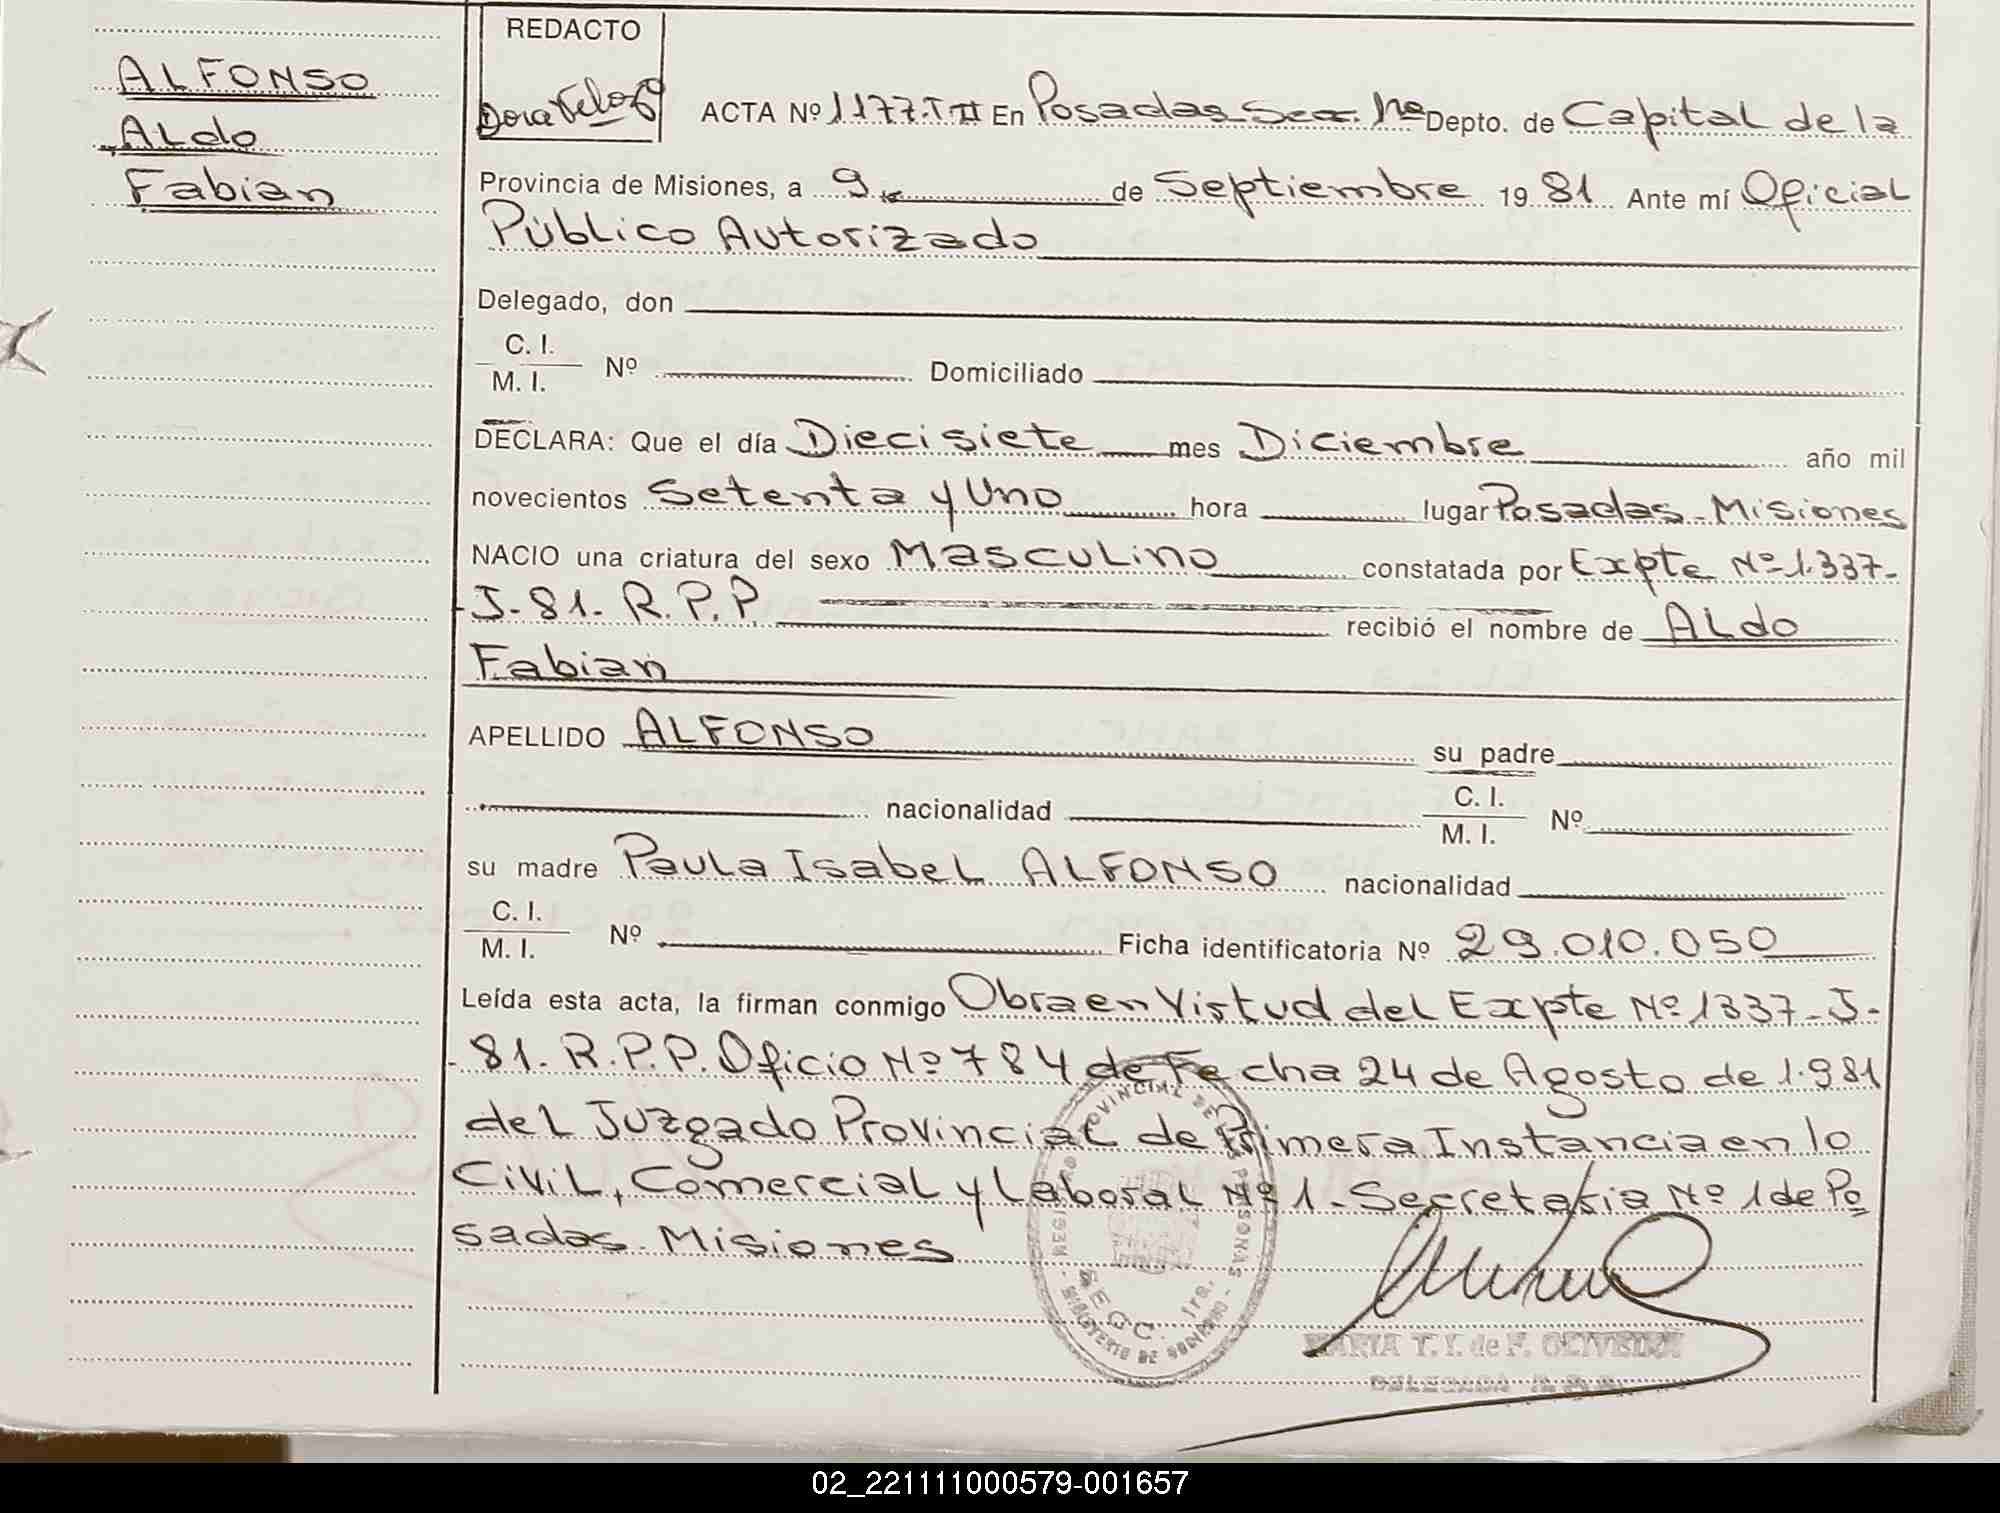 ALFONSO
Aldo
Fabian
REDACTO
ACTA Nº 1177.T II En Posadas Sec. 1ª Depto. de Capital de la
Provincia de Misiones, a 9 de Septiembre 19 81 Ante mí Oficial
Público Autorizado
Delegado, don
C. I.
M. I.
Nº Domiciliado
DECLARA: Que el día Diecisiete mes Diciembre año mil
novecientos Setenta y Uno hora lugar Posadas-Misiones
NACIO una criatura del sexo Masculino constatada por Expte Nº 1.337-
J-81. R.P.P. recibió el nombre de Aldo
Fabian
APELLIDO ALFONSO su padre
nacionalidad
C. I.
M. I.
Nº
su madre Paula Isabel ALFONSO nacionalidad
C. I.
M. I.
Nº Ficha identificatoria Nº 29.010.050
Leída esta acta, la firman conmigo Obra en Virtud del Expte Nº 1337-J-
-81. R.P.P. Oficio Nº 784 de Fecha 24 de Agosto de 1.981
del Juzgado Provincial de Primera Instancia en lo
Civil, Comercial y Laboral Nº 1-Secretaria Nº 1 de Po
sadas-Misiones
MARIA T. Y. de F. OLIVEIRA
DELEGADA
02_221111000579-001657